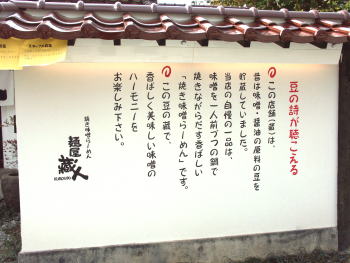 豆の詩が聴こえる
この店舗(蔵)は、
昔は味噌・醤油の原料の豆を
貯蔵していました。
当店の自慢の一品は、
味噌を一人前づつの鍋で
焼きながらだす香ばしい
「焼き味噌らーめん」です。
この豆の蔵で、
香ばしく美味しい味噌の
ハーモニーを
お楽しみ下さい。
焼き味噌らーめん
麺屋
蔵人
KURODO